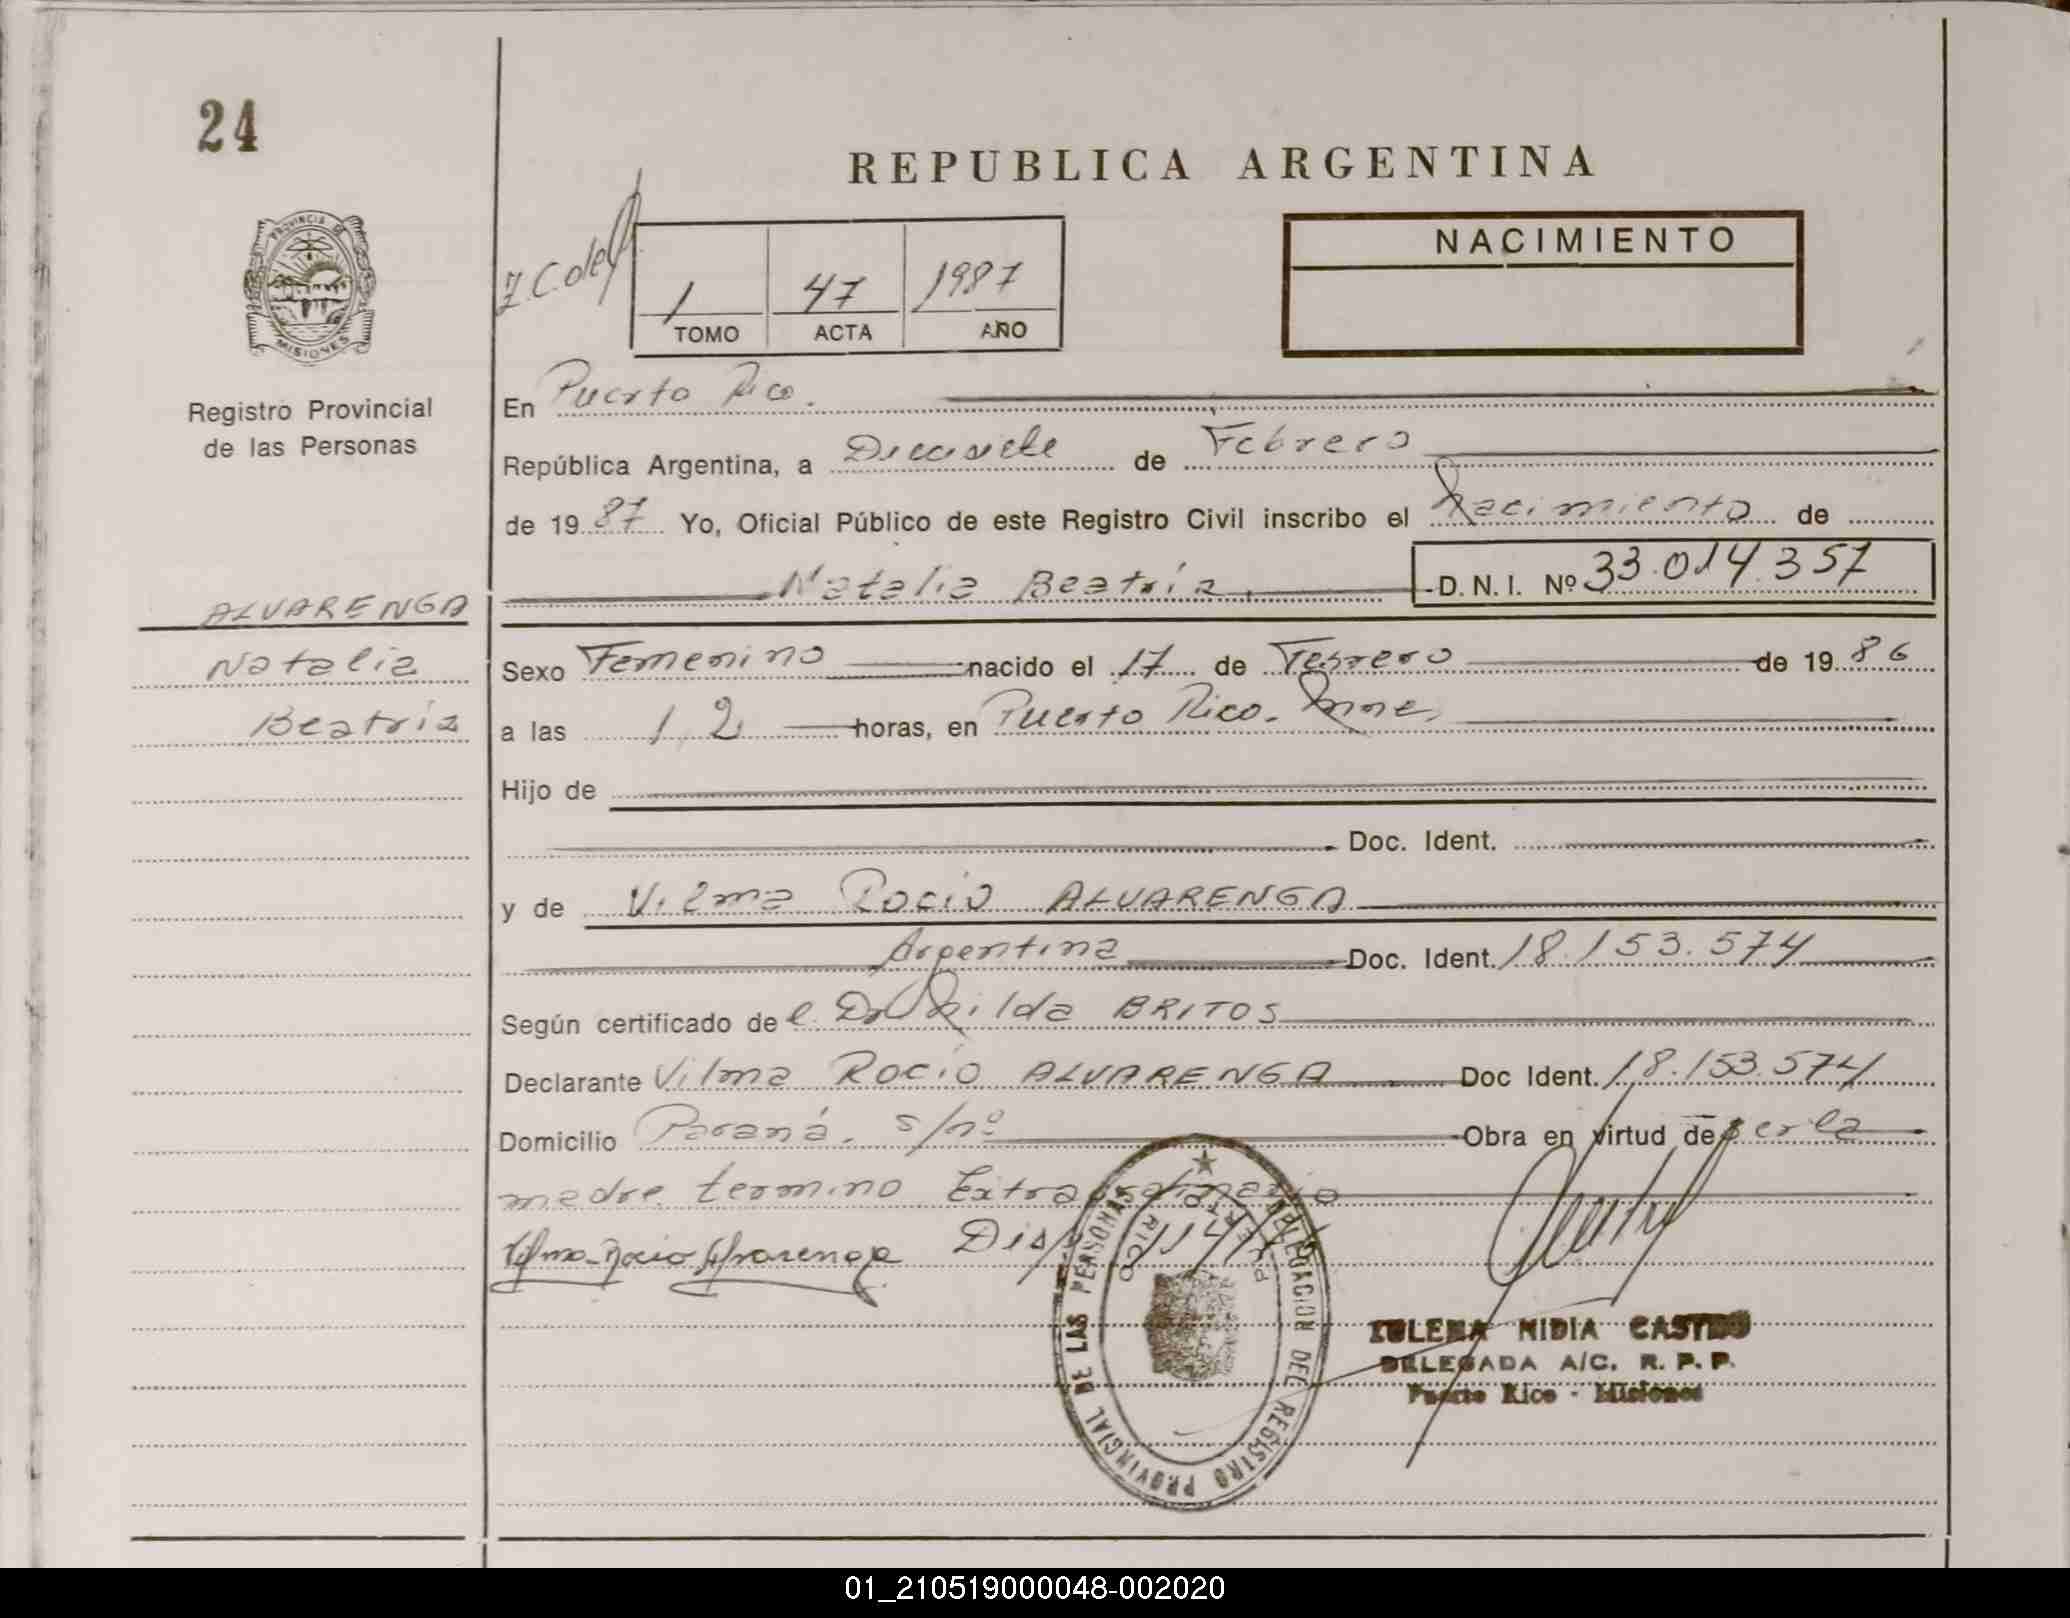 24
REPUBLICA ARGENTINA
NACIMIENTO
1 47 1987
TOMO ACTA AÑO
PROVINCIA DE
MISIONES
Registro Provincial
de las Personas
En Puerto Rico.
República Argentina, a Diecisiete de Febrero
de 19 87 Yo, Oficial Público de este Registro Civil inscribo el Nacimiento de
Natalia Beatríz. D. N. I. Nº 33.014.357
ALVARENGA
Natalia
Beatríz
Sexo Femenino nacido el 17 de Febrero de 19 86
a las 12 horas, en Puerto Rico. Mnes.
Hijo de
Doc. Ident.
y de Vilma Rocío ALVARENGA
Argentina Doc. Ident. 18.153.574
Según certificado de Hilda BRITOS
Declarante Vilma Rocío ALVARENGA Doc Ident. 18.153.574
Domicilio Paraná. s/nº Obra en virtud de ser la
madre. termino Extraordinario
Vilma Rocio Alvarenga
DELEGACION DEL REGISTRO PROVINCIAL DE LAS PERSONAS
PUERTO RICO
NIDIA CASTRO
DELEGADA A/C. R. P. P.
Puerto Rico - Misiones
01_210519000048-002020